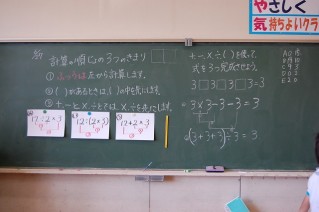 やさしく
気持ちよいクラ
計算の順じょの3つのきまり
① ふつうは左から計算します。
② ( )があるときは、( )の中を先にします。
③ +-と×÷とでは×、÷を先にします。
12÷2×3
12÷(2×3)
12+2×3
+-×÷( )を使って、
式を3つ完成させよう。
3□3□3□3=3
3×3-3-3=3
(3+3+3)÷3=3